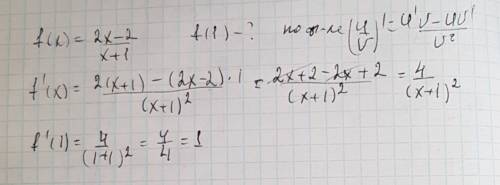 f(x) = 2x-2/x+1 f(1) - ? по ф-ле (u/v)' = u'v - uv'/v²
f'(x) = 2(x+1) - (2x-2)·1/(x+1)² = 2x+2-2x+2/(x+1)² = 4/(x+1)²
f'(1) = 4/(1+1)² = 4/4 = 1